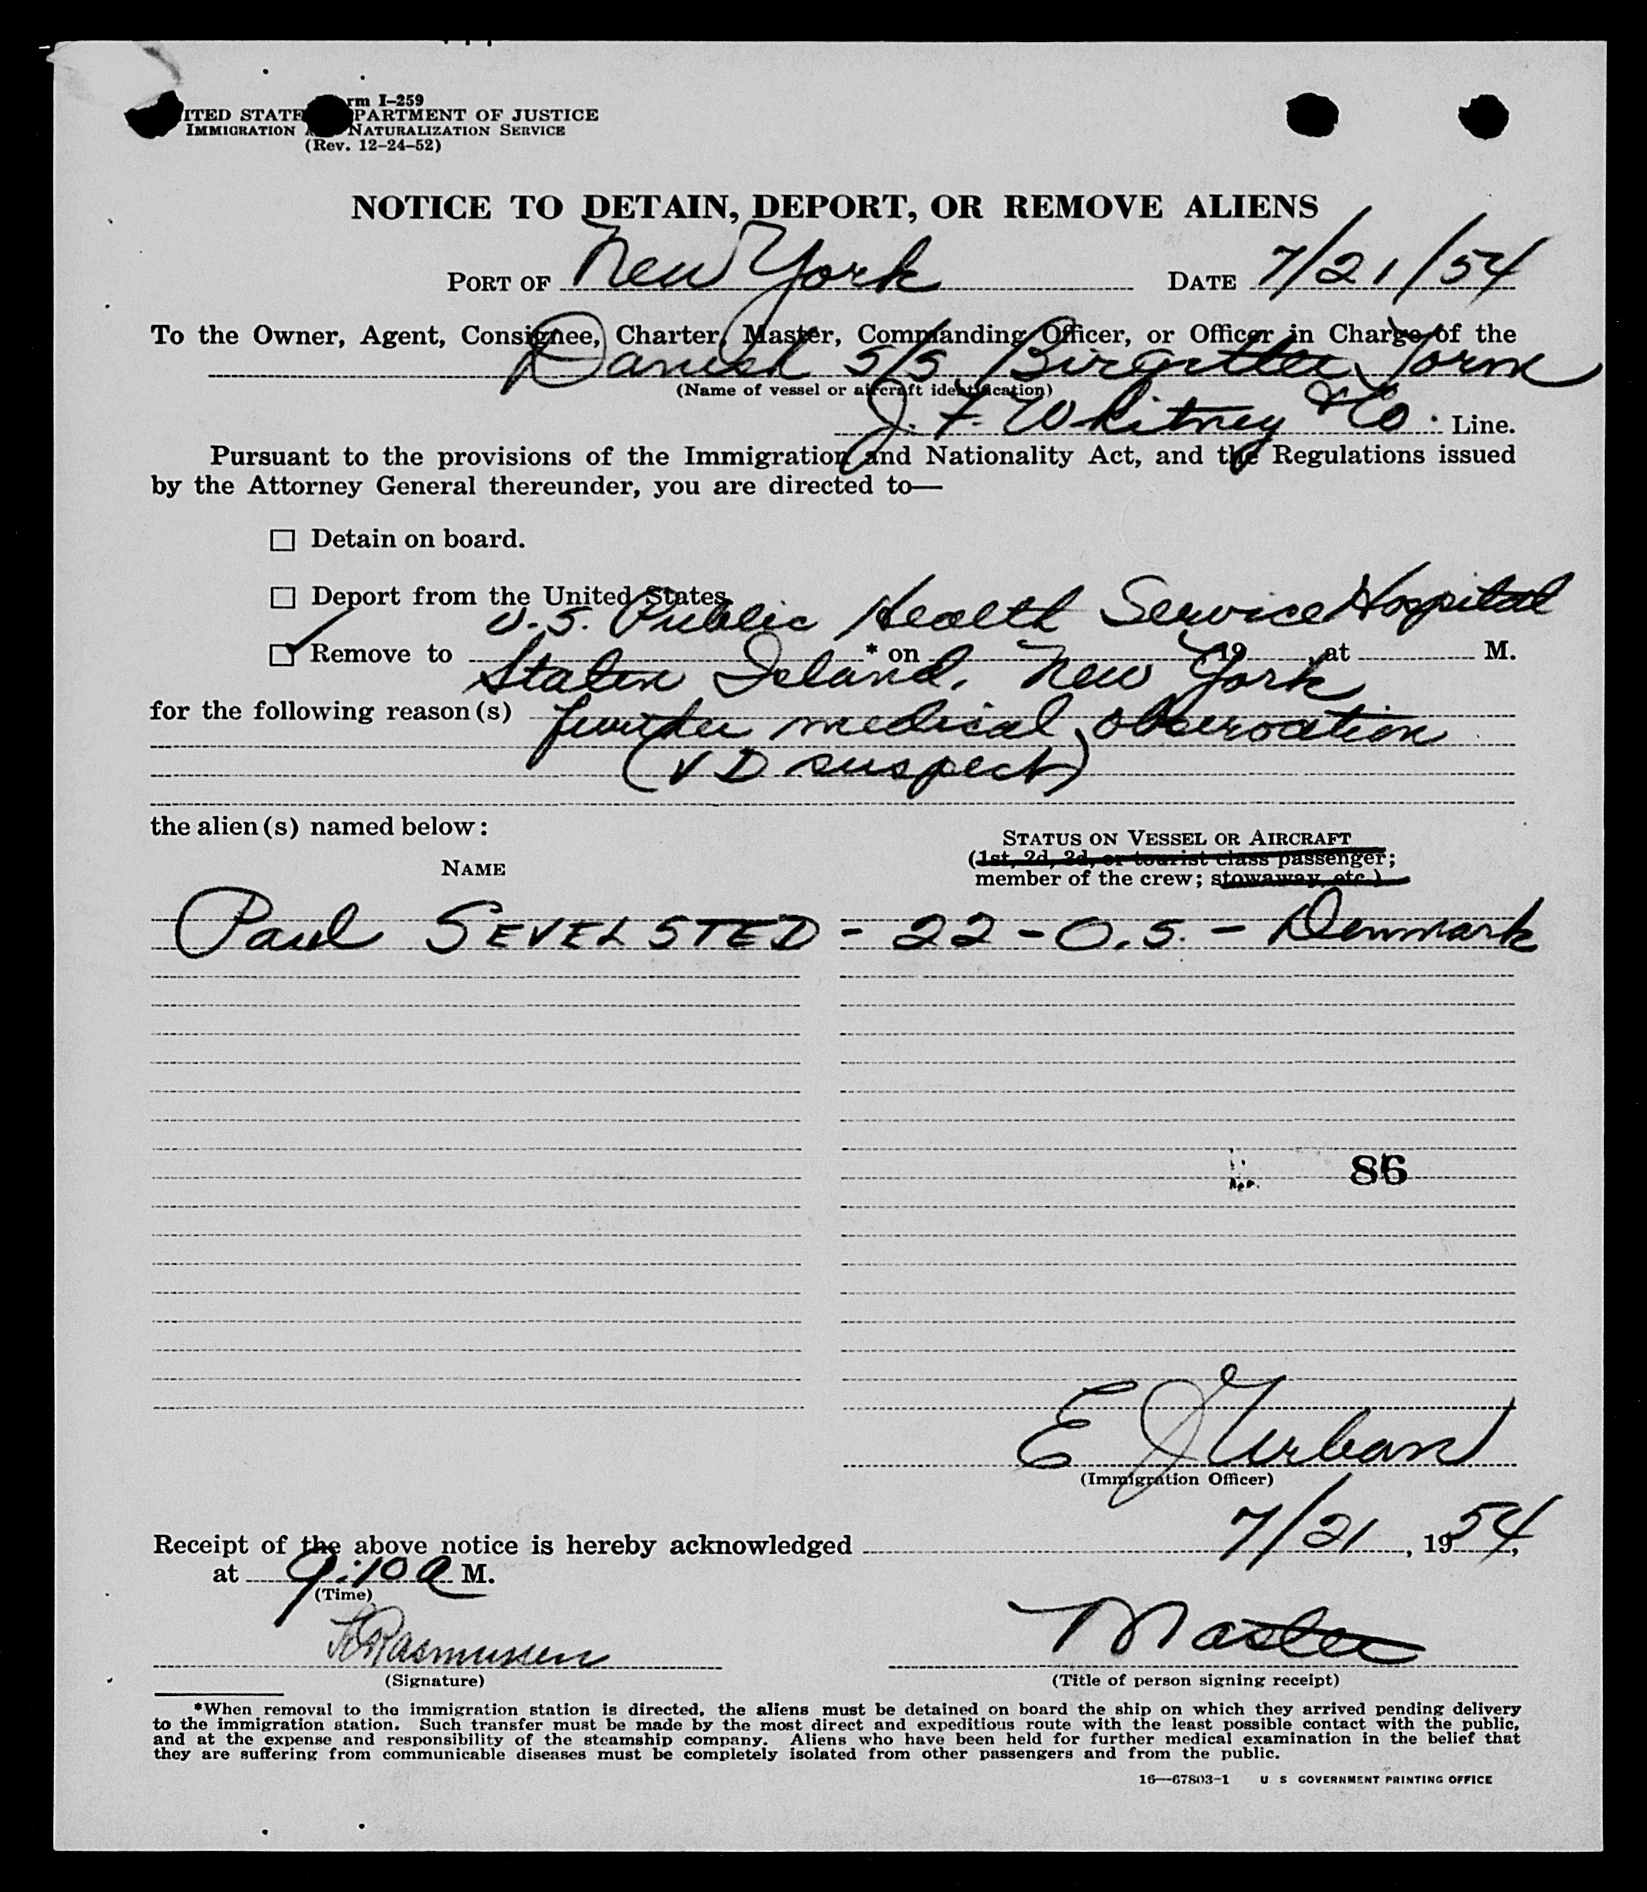 rm I-259
ITED STATE PARTMENT OF JUSTICE
IMMIGRATION NATURALIZATION SERVICE
(Rev. 12-24-52)
NOTICE TO DETAIN, DEPORT, OR REMOVE ALIENS
PORT OF New York DATE 7/21/54
To the Owner, Agent, Consignee, Charter, Master, Commanding Officer, or Officer in Charge of the
Danish S/S Birgitte Torm
(Name of vessel or aircraft identification)
J. F. Whitney & Co. Line.
Pursuant to the provisions of the Immigration and Nationality Act, and the Regulations issued
by the Attorney General thereunder, you are directed to—
☐ Detain on board.
☐ Deport from the United States.
U.S. Public Health Service Hospital
☑ Remove to * on , 19 , at M.
Staten Island, New York
for the following reason(s) further medical observation
(VD suspect)
the alien(s) named below:
STATUS ON VESSEL OR AIRCRAFT
(1st, 2d, 3d, or tourist class passenger;
NAME
member of the crew; stowaway, etc.)
Paul SEVELSTED - 22 - O.S. - Denmark
86
E J Urban
(Immigration Officer)
Receipt of the above notice is hereby acknowledged 7/21, 1954,
at 9:10 A M.
(Time)
Rasmussen Master
(Signature) (Title of person signing receipt)
*When removal to the immigration station is directed, the aliens must be detained on board the ship on which they arrived pending delivery
to the immigration station. Such transfer must be made by the most direct and expeditious route with the least possible contact with the public,
and at the expense and responsibility of the steamship company. Aliens who have been held for further medical examination in the belief that
they are suffering from communicable diseases must be completely isolated from other passengers and from the public.
16—67803-1 U S GOVERNMENT PRINTING OFFICE